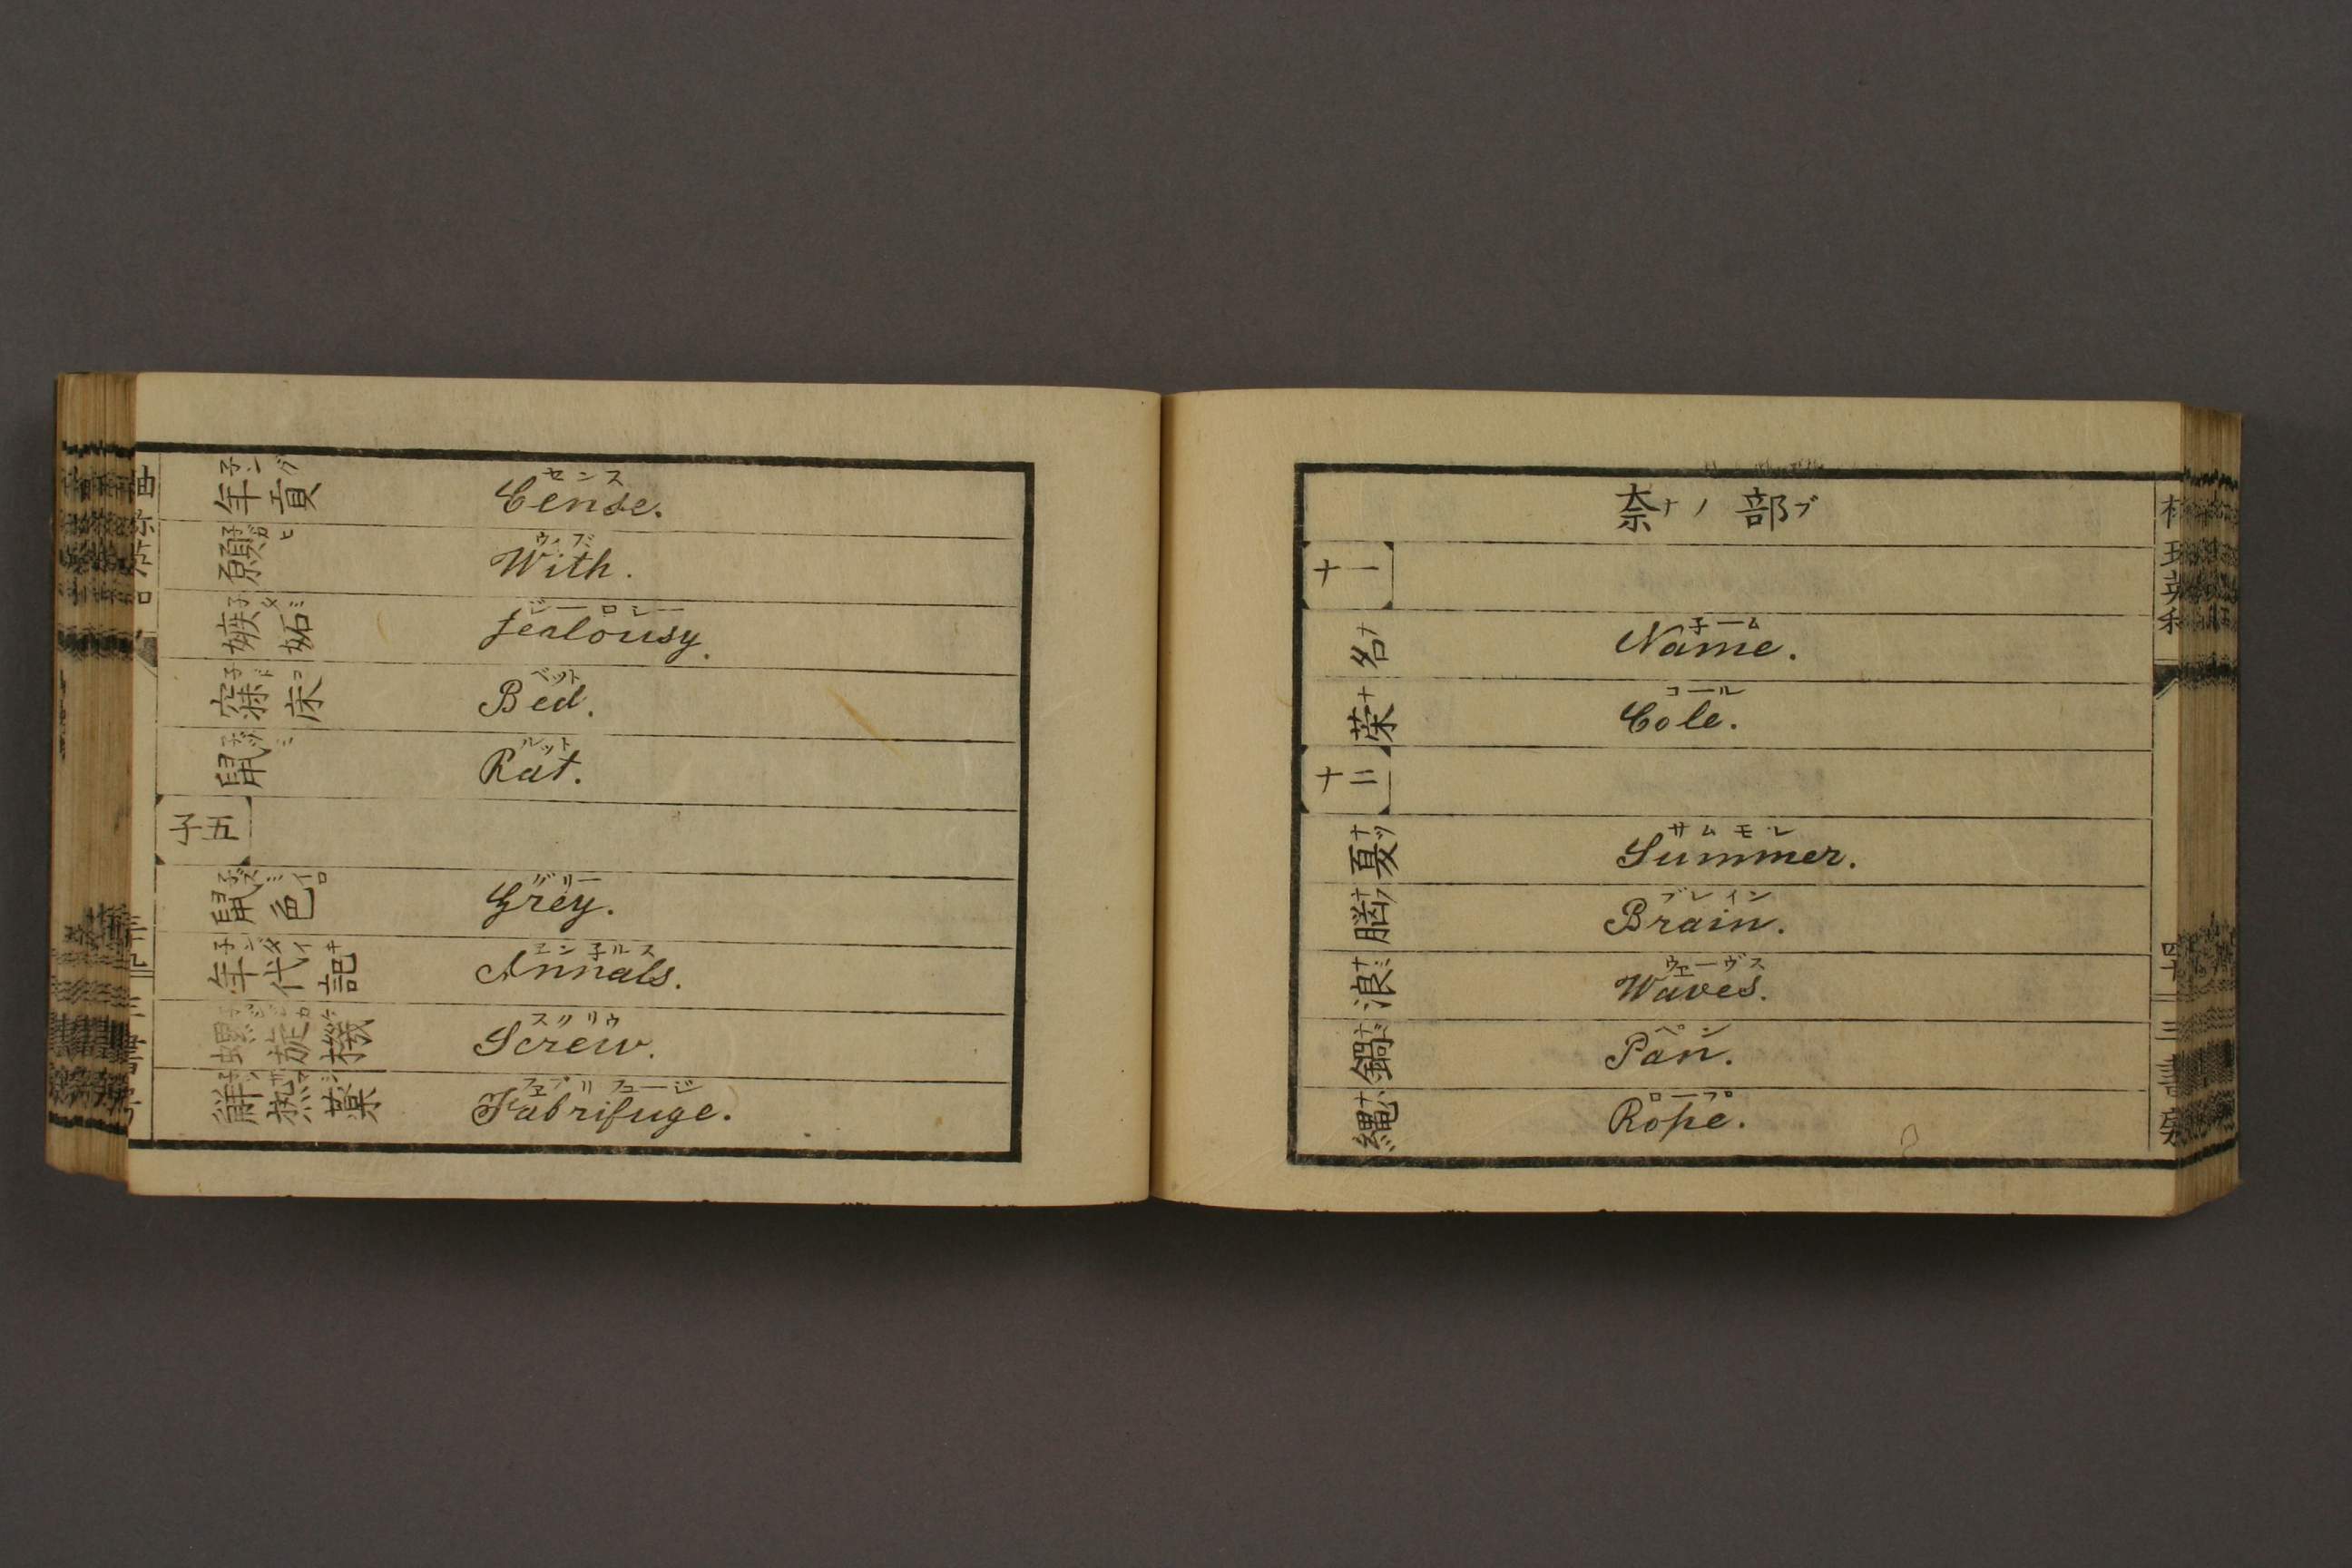 年貢 子ング
Cense. センス
願 子ガヒ
With. ウィブ
嫉妬 子タミ
Jealousy. ジーロシー
寐床 子ドコ
Bed. ベット
鼠 子ヅミ
Rat. ルット
子五
鼠色 子ズミイロ
Grey. グリー
年代記 子ンダイキ
Annals. エン子ルス
螺旋機
Screw. スクリウ
觧熱藥
Fabrifuge. フェブリフュージ
奈ナノ部ブ
ナ一
名 ナ
Name. 子ーム
菜 ナ
Cole. コール
ナ二
夏 ナツ
Summer. サムモル
脳 ナフ
Brain. ブレイン
浪 ナミ
Waves. ウェーヴス
鍋 ナベ
Pan. ペン
縄 ナハ
Rope. ロープ